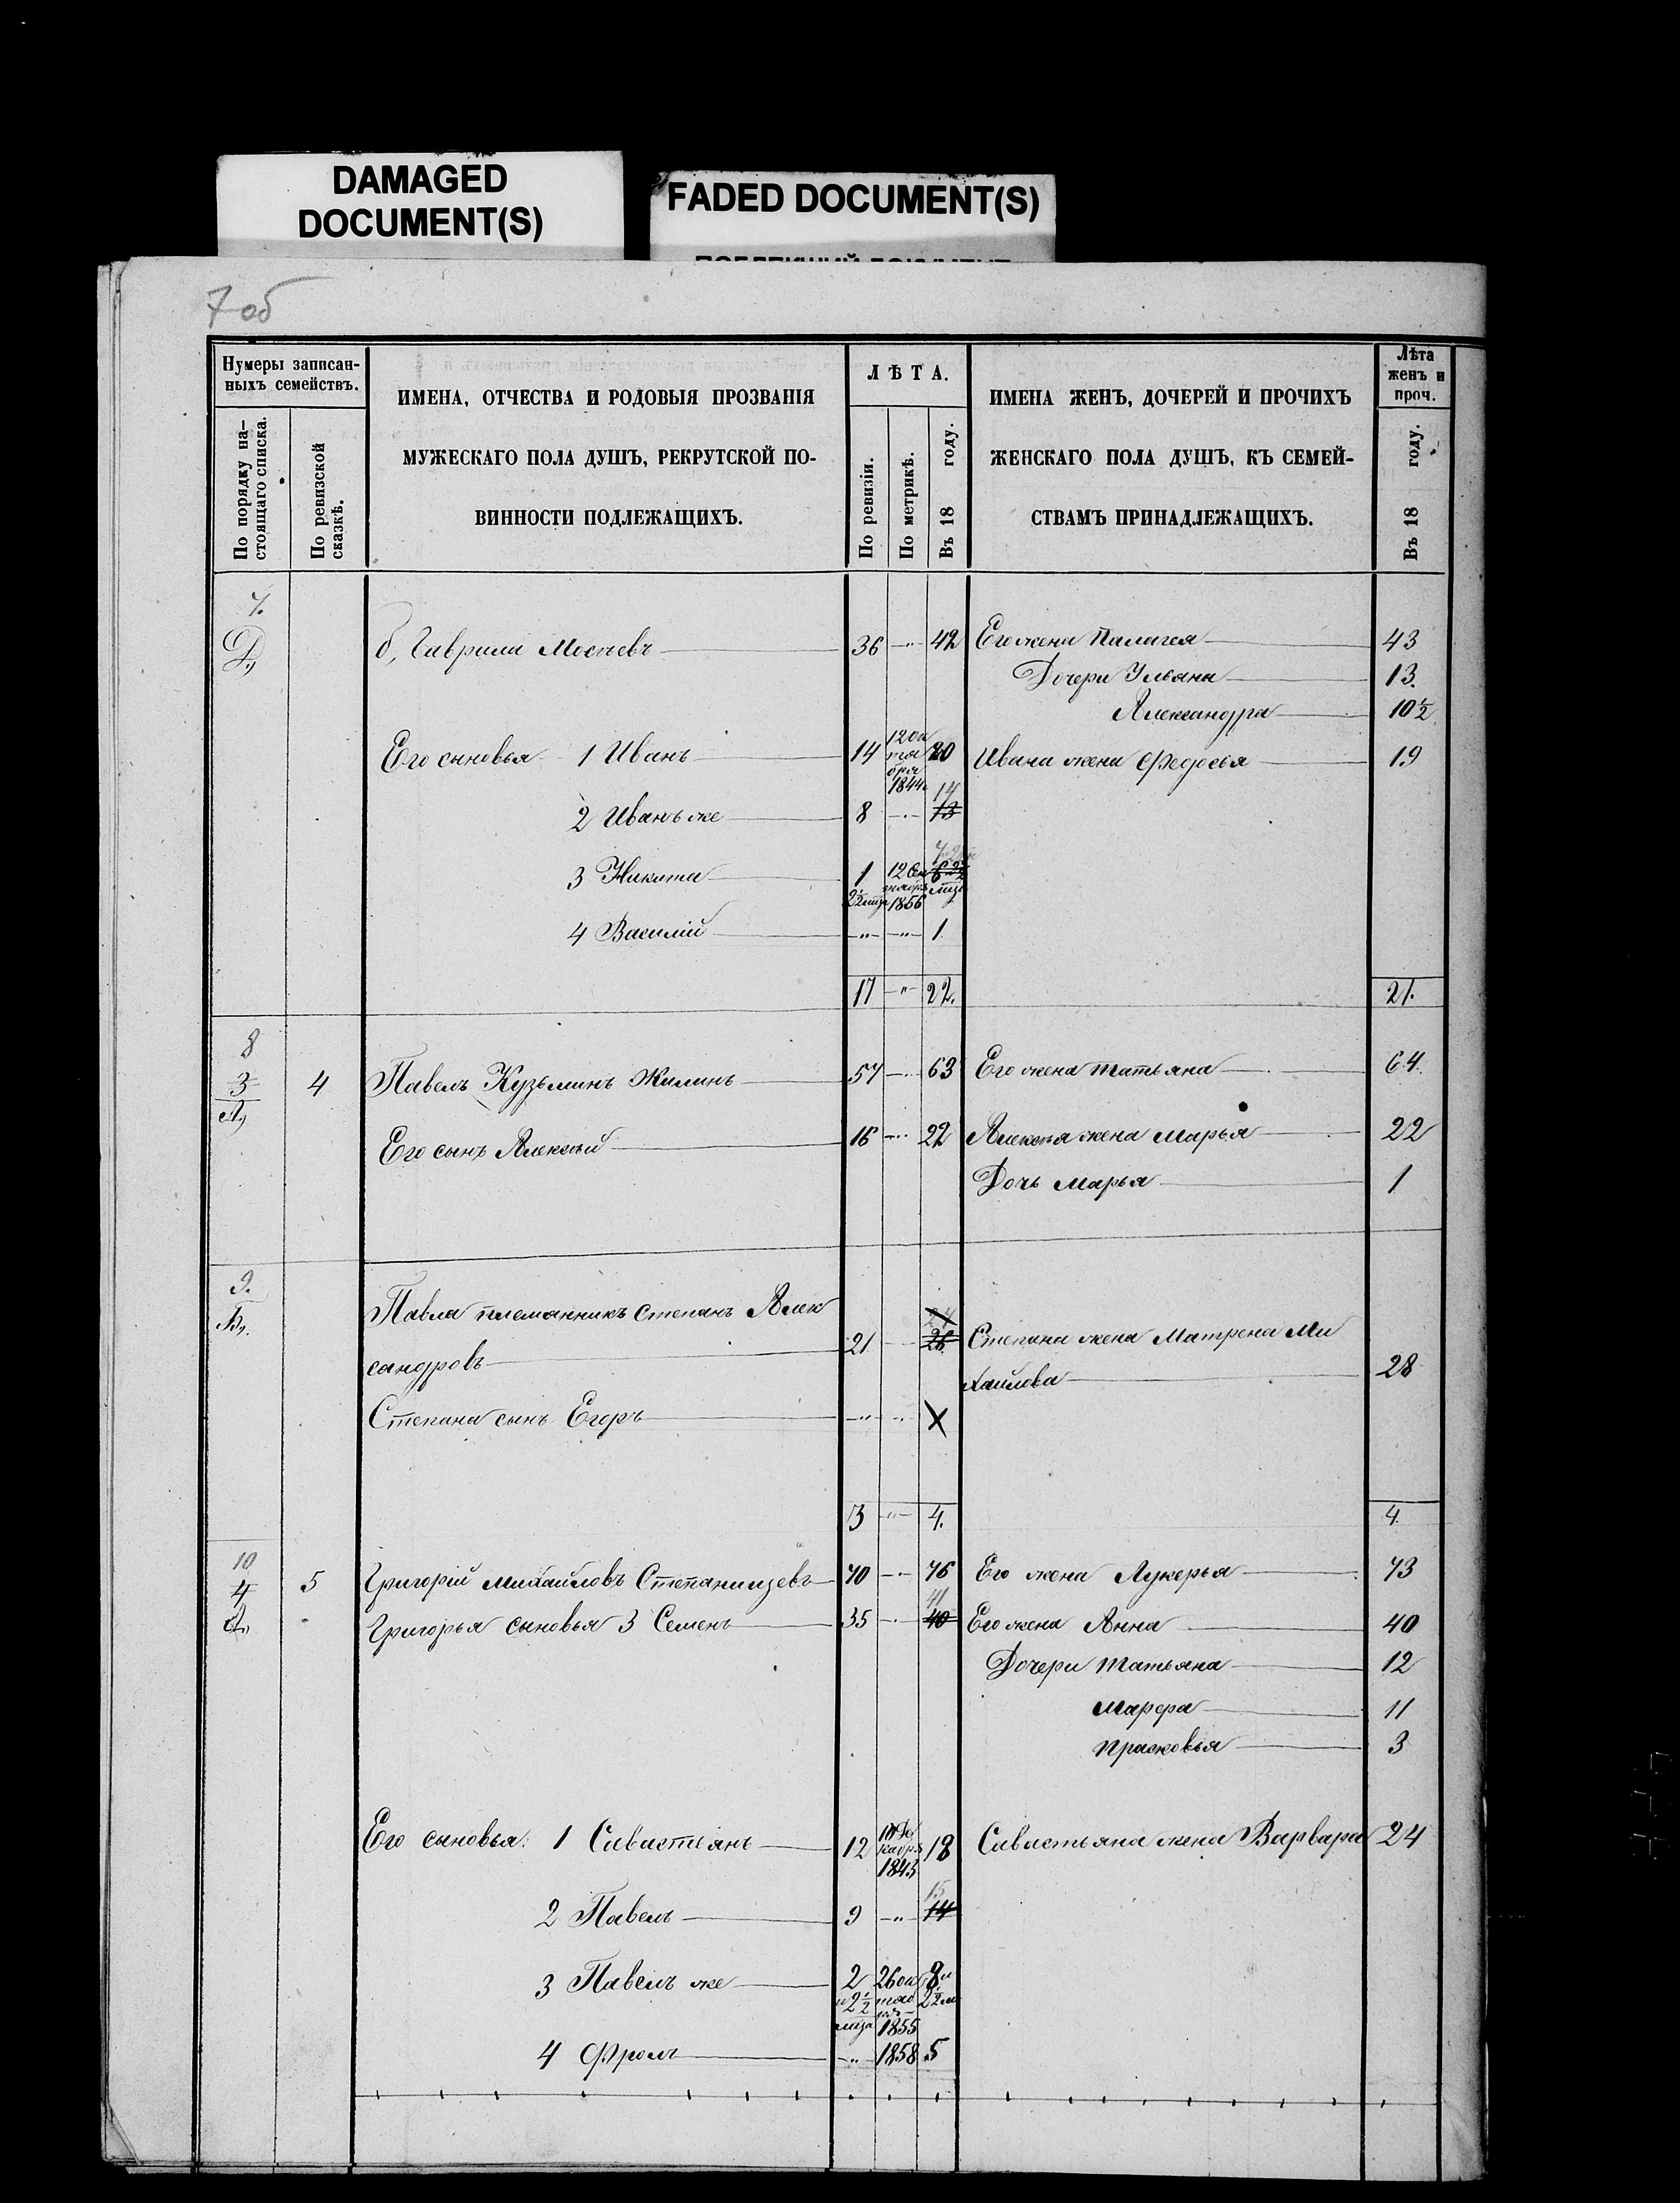 DAMAGED
DOCUMENT(S)
FADED DOCUMENT(S)
7 об
Нумеры записан-
ныхъ семействъ.
По порядку на-
стоящаго списка.
По ревизской
сказкѣ.
ИМЕНА, ОТЧЕСТВА И РОДОВЫЯ ПРОЗВАНІЯ
МУЖЕСКАГО ПОЛА ДУШЪ, РЕКРУТСКОЙ ПО-
ВИННОСТИ ПОДЛЕЖАЩИХЪ.
ЛѢТА.
По ревизіи.
По метрикѣ.
Въ 18 году.
ИМЕНА ЖЕНЪ, ДОЧЕРЕЙ И ПРОЧИХЪ
ЖЕНСКАГО ПОЛА ДУШЪ, КЪ СЕМЕЙ-
СТВАМЪ ПРИНАДЛЕЖАЩИХЪ.
Лѣта
женъ и
проч.
Въ 18 году.
7.
б, Гаврила 36 42 Его жена Палагея 43
Дочери Ульяна 13.
Александра 10½
Его сыновья 1 Иванъ 14 12 ок тября 1844 20 Ивана жена Федосья 19
2 Иванъ же 8 14 13
3 Никита 1 2½ мца 1856
4 Василій 1
17 22. 21.
8
3 4 Павелъ Кузьминъ Жилинъ 57 63 Его жена Татьяна 64.
Его сынъ Алексѣй 16 22 Алексѣя жена Марья 22
Дочь Марья 1
9.
Павла племянникъ Степанъ Алек
сандровъ 21 27 26 Степана жена Матрена Ми
хайлова 28
Степана сынъ Егоръ X
3 4. 4.
10
4 5 Григорій Михайловъ 70 76 Его жена Лукерья 73
Григорья сыновья 3 Семенъ 35 41 40 Его жена Анна 40
Дочери Татьяна 12
Марфа 11
Прасковья 3
Его сыновья: 1 Савастьянъ 12 1843 18 Савастьяна жена Варвара 24
2 Павелъ 9 15 14
3 Павелъ же 2 и 2½ мца 26 ок 1855 8 и 2½ м
4 Фролъ 1858 5